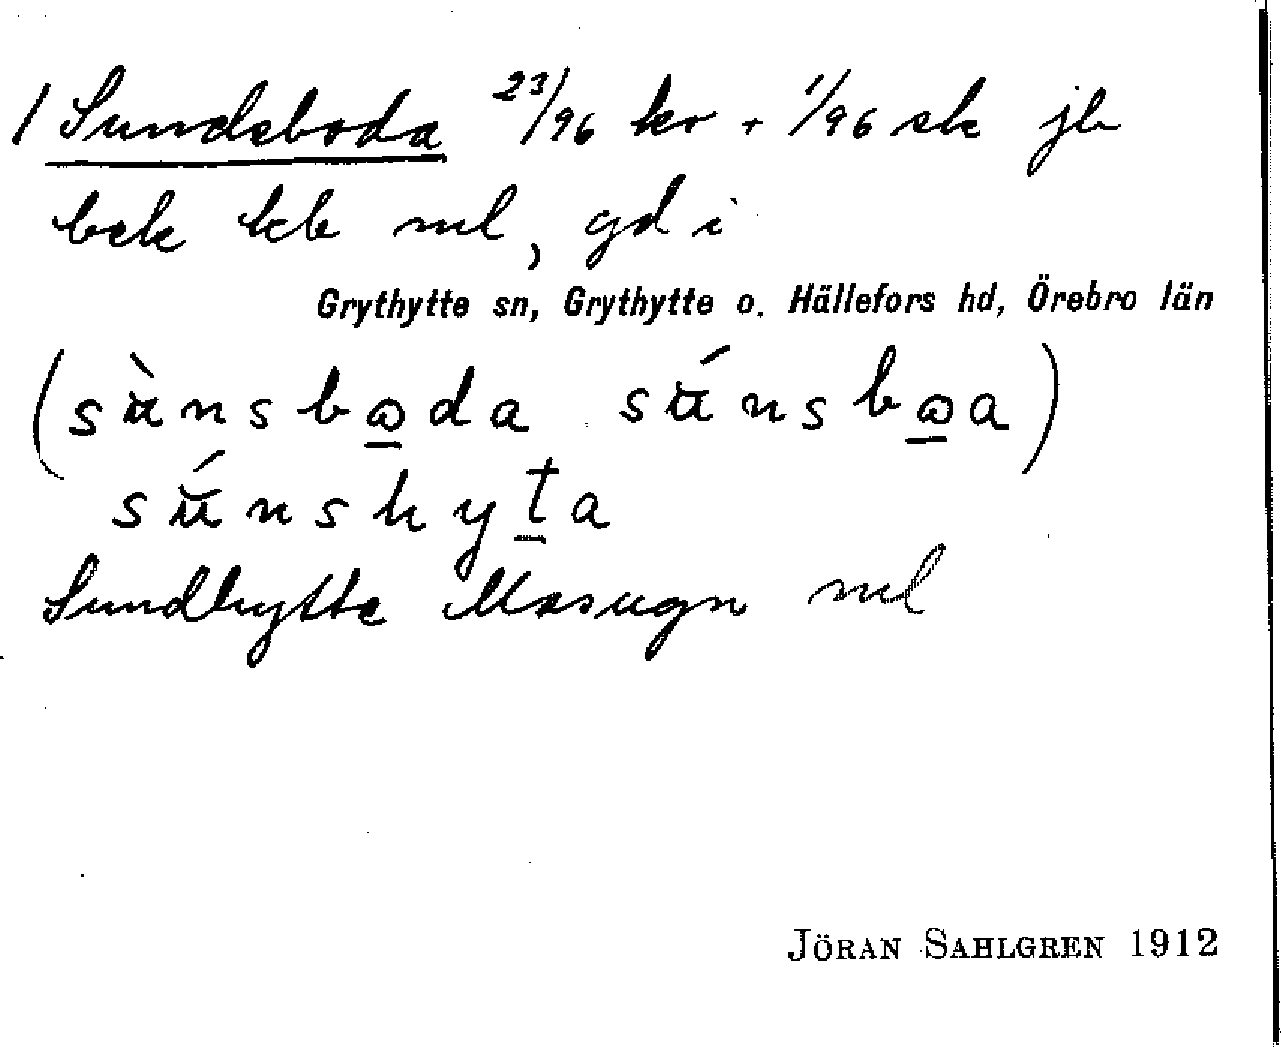 / Sundsboda 23/96 kr + 1/96 sk jb
bek kb ml, gd i
Grythytte sn, Grythytte o. Hällefors hd, Örebro län
(sùnsbꙍda sǘnsbꙍa)
sǘnshyta
Sundhytte Masugn ml
JÖRAN SAHLGREN 1912